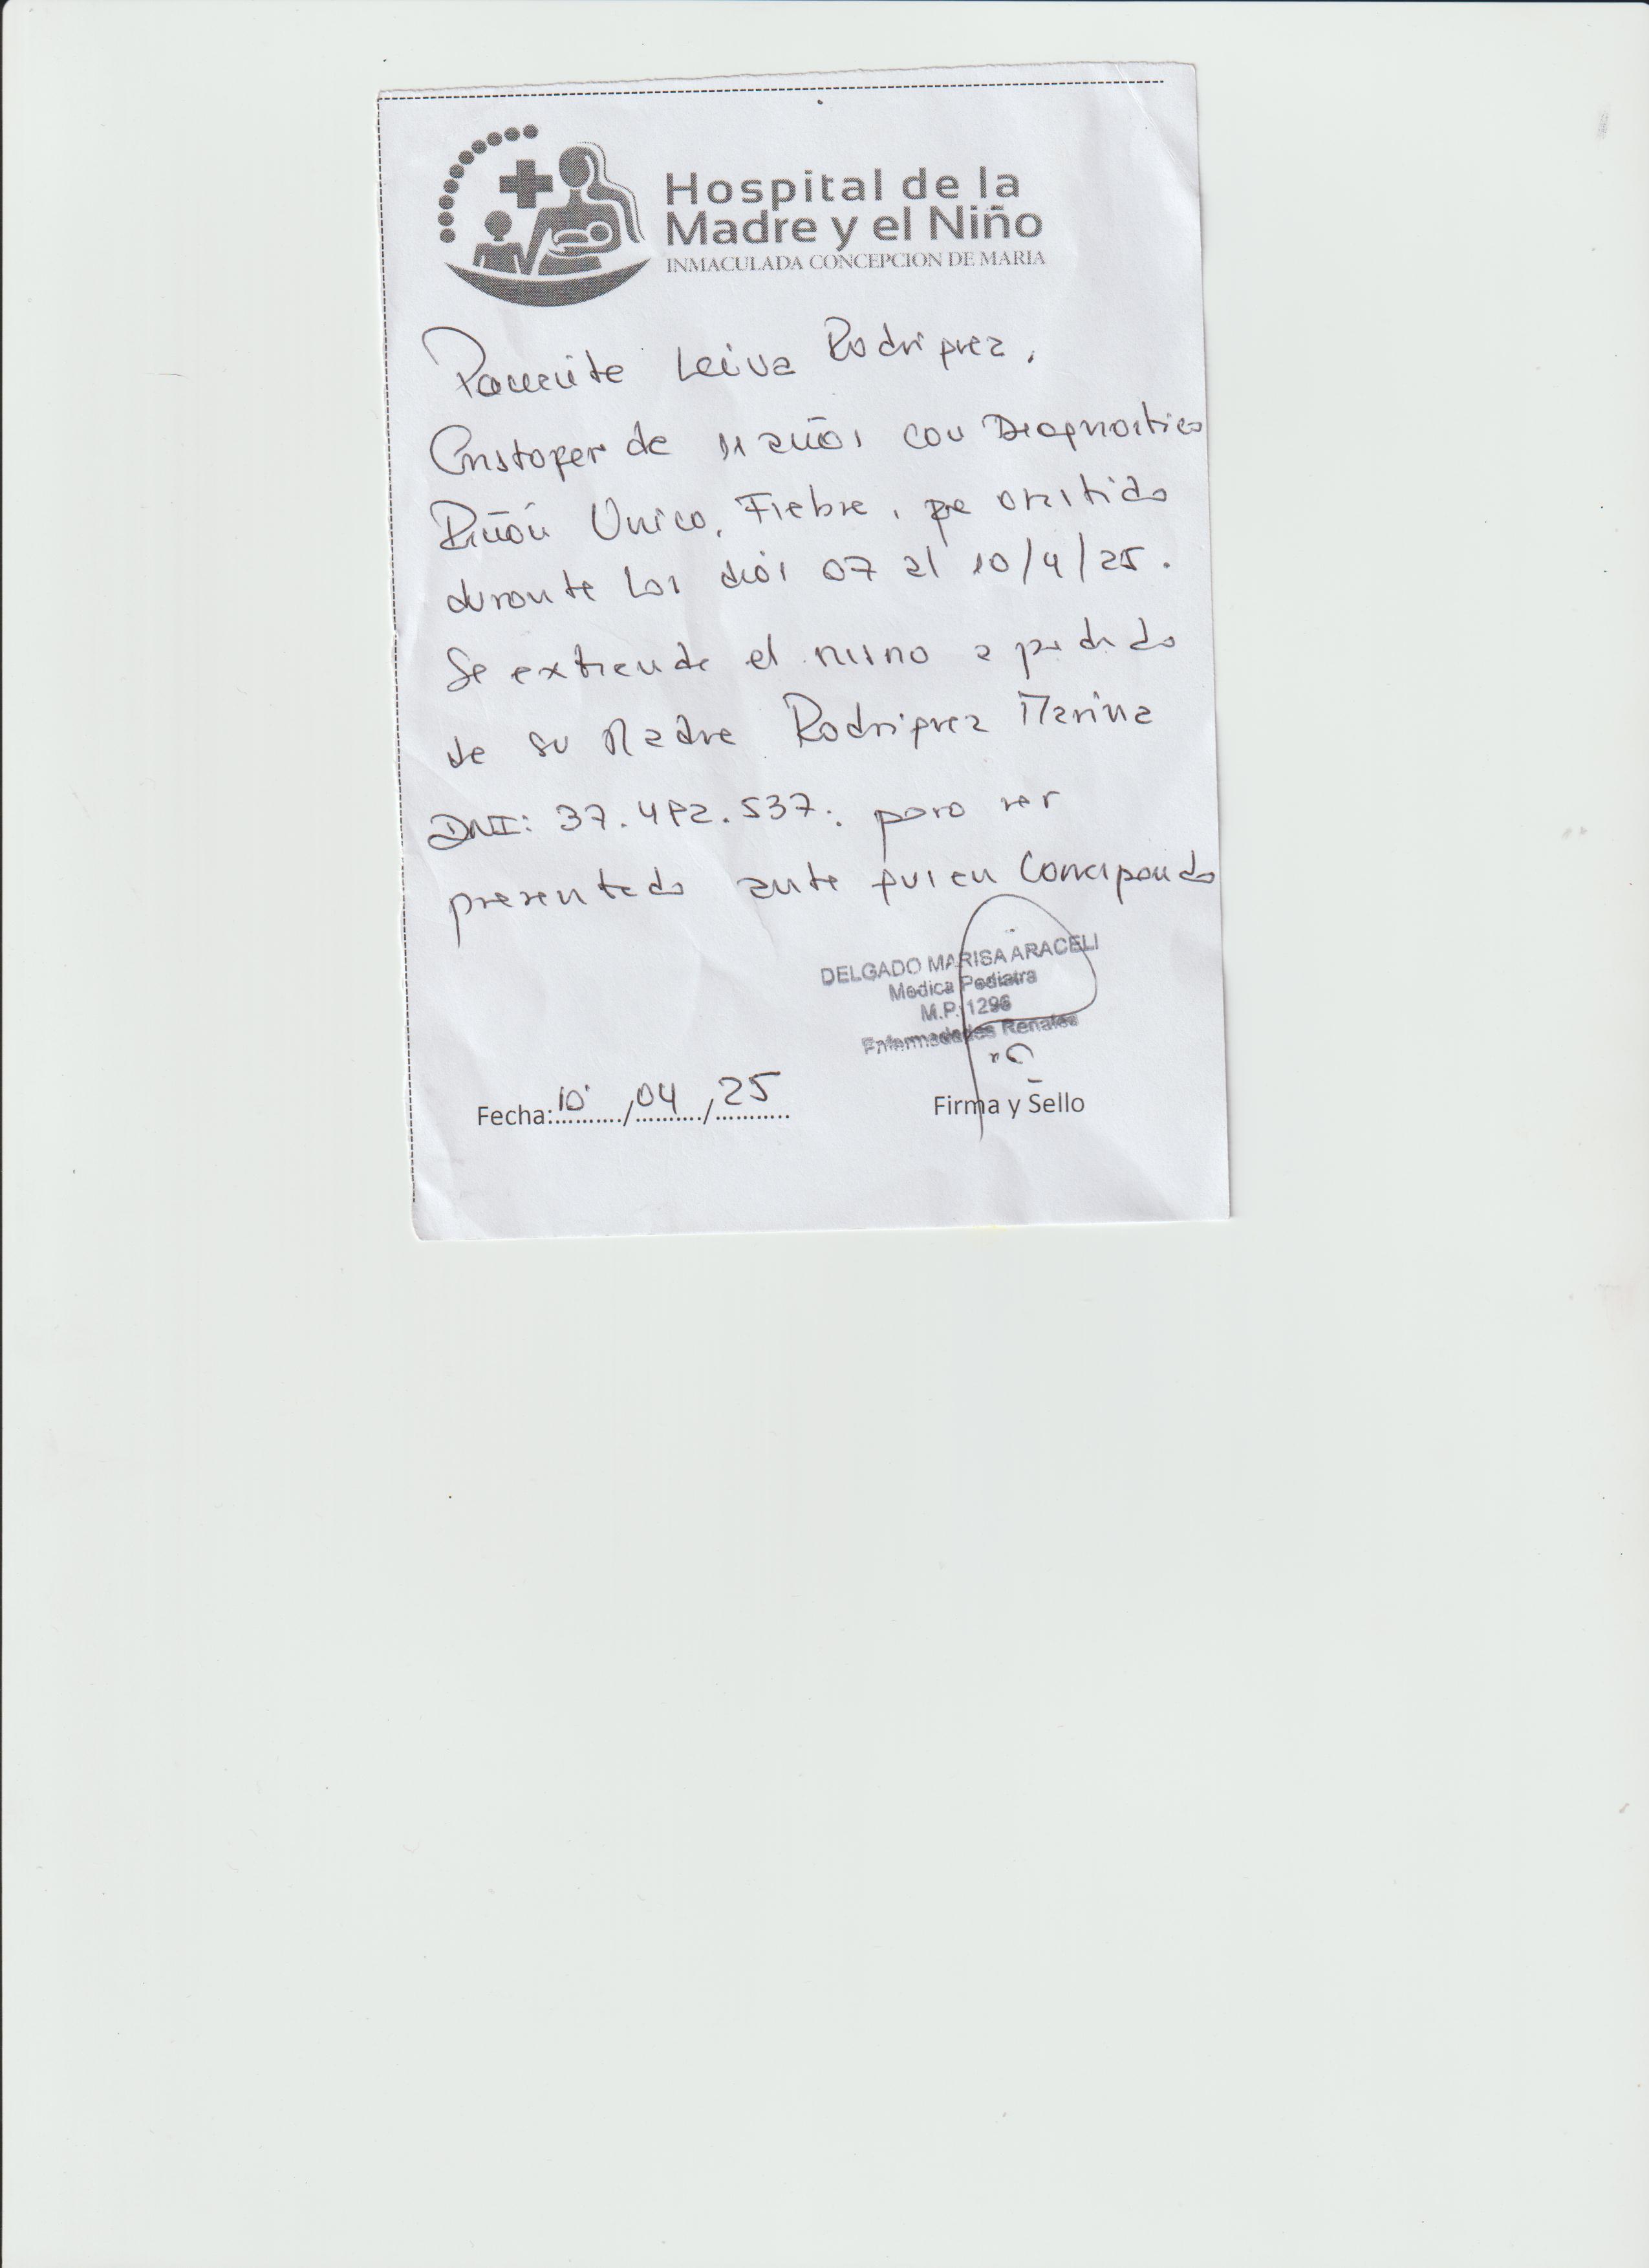 Hospital de la
Madre y el Niño
INMACULADA CONCEPCION DE MARIA
Paciente Leiva Rodriguez,
Cristofer de 11 años con Diagnostico
Riñón Unico, Fiebre, fue asistido
durante los días 07 al 10/4/25.
Se extiende el mismo a pedido
de su Madre Rodriguez Marina
DNI: 37.492.537. para ser
presentado ante quien Corresponda
DELGADO MARISA ARACELI
Medica Pediatra
M.P. 1296
Enfermedades Renales
Fecha: 10 / 04 / 25
Firma y Sello